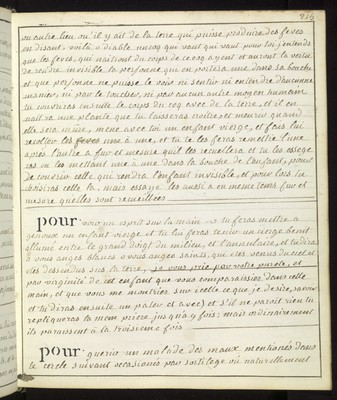 216
ou autre lieu ou il y ait de la terre qui puisse produire des feves
en disant voilà o diable un coq qui vaut qui vaut pour toi j'entends
que les feves, qui naitront du corps de ce coq ayent et auront la vertu
de rendre invisible la personne qui en portera une dans sa bouche
et que personne ne puisse le voir ni sentir ni entendre d'aucunne
maniere, ni par le toucher, ni par aucun autre moyen humain
tu couvriras ensuite le corps du coq avec de la terre, et il en
naitra une plante que tu laisseras croitre et meurir quand
elle sera mûre, mene avec toi un enfant vierge, et fais lui
recolter les feves une à une, et tu te les feras remettre l'une
apres l'autre a fur et mesure quil les recueillera et tu les essaye
ras en les mettant une à une dans la bouche de l'enfant, pour
de trouver celle qui rendra l'enfant invisible, et pour lors tu
choisiras celle la, mais essaye les aussi a en meme tems fur et
mesure quelles sont recueillies
pour voir un esprit sur la main tu feras mettre a
genoux un enfant vierge et tu lui feras tenir un cierge benit
allumé entre le grand doigt du milieu, et l'annulaire, et tu diras
o vous anges blancs o vous anges saints, que etes venus du ciel et
etes descendus sur la terre, je vous prie par votre pureté, et
par virginité de cet enfant que vous comparaissiez dans cette
main, et que vous me montriez sur icelle ce que je desire, savoir
et tu diras ensuite un pater et ave) et s'il ne paroit rien tu
repliqueras la mem priere jusqu'a 9 fois: mais ordinairement
ils paroissent à la troisieme fois
pour guerir un malade des maux mentionés dans
le cercle suivant occasionés par sortilege ou naturellement